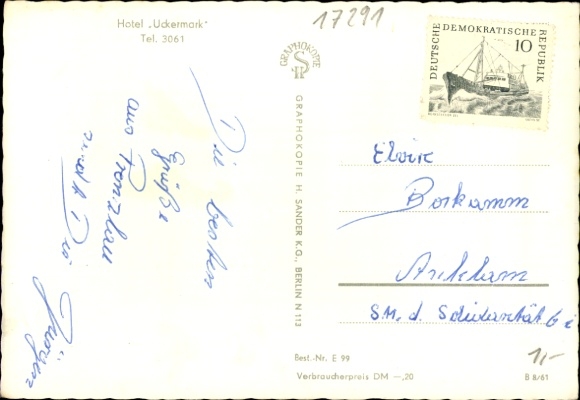 Hotel „Uckermark"
Tel. 3061
17291
DEUTSCHE DEMOKRATISCHE REPUBLIK
10
GRAPHOKOPIE
GRAPHOKOPIE H. SANDER K.G., BERLIN N 113
Die besten
Grüße
aus Prenzlau
Jürgen
Borkamm
Anklam
Best.-Nr. E 99
Verbraucherpreis DM —,20
B 8/61
1,-